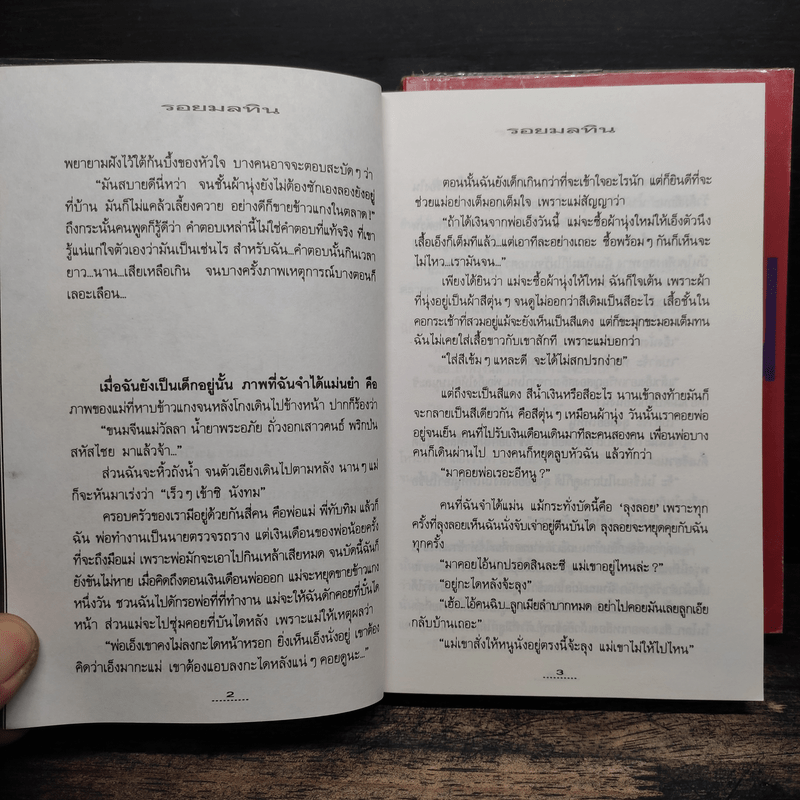 รอยมลทิน
พยายามฝังไว้ใต้ก้นบึ้งของหัวใจ บางคนอาจจะตอบสะบัดๆ ว่า
“มันสบายดีนี่หว่า จนชั้นผ้านุ่งยังไม่ต้องซักเองลองยังอยู่
ที่บ้าน มันก็ไม่แคล้วเลี้ยงควาย อย่างดีก็ขายข้าวแกงในตลาด!”
ถึงกระนั้นคนพูดก็รู้ดีว่า คำตอบเหล่านี้ไม่ใช่คำตอบที่แท้จริง ที่เขา
รู้แน่แก่ใจตัวเองว่ามันเป็นเช่นไร สำหรับฉัน...คำตอบนั้นกินเวลา
ยาว...นาน...เสียเหลือเกิน จนบางครั้งภาพเหตุการณ์บางตอนก็
เลอะเลือน...
เมื่อฉันยังเป็นเด็กอยู่นั้น ภาพที่ฉันจำได้แม่นยำ คือ
ภาพของแม่ที่หาบข้าวแกงจนหลังโกงเดินไปข้างหน้า ปากก็ร้องว่า
“ขนมจีนแม่วัลลา น้ำยาพระอภัย ถั่วงอกเสาวคนธ์ พริกป่น
สหัสไชย มาแล้วจ้า...”
ส่วนฉันจะหิ้วถังน้ำ จนตัวเอียงเดินไปตามหลัง นานๆ แม่
ก็จะหันมาเร่งว่า “เร็วๆ เข้าซิ นังทม”
ครอบครัวของเรามีอยู่ด้วยกันสี่คน คือพ่อแม่ พี่ทับทิม แล้วก็
ฉัน พ่อทำงานเป็นนายตรวจรถราง แต่เงินเดือนของพ่อน้อยครั้ง
ที่จะถึงมือแม่ เพราะพ่อมักจะเอาไปกินเหล้าเสียหมด จนบัดนี้ฉันก็
ยังขันไม่หาย เมื่อคิดถึงตอนเงินเดือนพ่อออก แม่จะหยุดขายข้าวแกง
หนึ่งวัน ชวนฉันไปดักรอพ่อที่ที่ทำงาน แม่จะให้ฉันดักคอยที่บันได
หน้า ส่วนแม่จะไปซุ่มคอยที่บันไดหลัง เพราะแม่ให้เหตุผลว่า
“พ่อเอ็งเขาคงไม่ลงกะไดหน้าหรอก ยิ่งเห็นเอ็งนั่งอยู่ เขาต้อง
คิดว่าเอ็งมากะแม่ เขาต้องแอบลงกะไดหลังแน่ๆ คอยดูนะ...”
2
รอยมลทิน
ตอนนั้นฉันยังเด็กเกินกว่าที่จะเข้าใจอะไรนัก แต่ก็ยินดีที่จะ
ช่วยแม่อย่างเต็มอกเต็มใจ เพราะแม่สัญญาว่า
“ถ้าได้เงินจากพ่อเอ็งวันนี้ แม่จะซื้อผ้านุ่งใหม่ให้เอ็งตัวนึง
เสื้อเอ็งก็เต็มทีแล้ว...แต่เอาทีละอย่างเถอะ ซื้อพร้อมๆ กันก็เห็นจะ
ไม่ไหว...เรามันจน...”
เพียงได้ยินว่า แม่จะซื้อผ้านุ่งให้ใหม่ ฉันก็ใจเต้น เพราะผ้า
ที่นุ่งอยู่เป็นผ้าสีตุ่นๆ จนดูไม่ออกว่าสีเดิมเป็นสีอะไร เสื้อชั้นใน
คอกระเช้าที่สวมอยู่แม้จะยังเห็นเป็นสีแดง แต่ก็ขะมุกขะมอมเต็มทน
ฉันไม่เคยใส่เสื้อขาวกับเขาสักที เพราะแม่บอกว่า
“ใส่สีเข้มๆ แหละดี จะได้ไม่สกปรกง่าย”
แต่ถึงจะเป็นสีแดง สีน้ำเงินหรือสีอะไร นานเข้าลงท้ายมันก็
จะกลายเป็นสีเดียวกัน คือสีตุ่นๆ เหมือนผ้านุ่ง วันนั้นเราคอยพ่อ
อยู่จนเย็น คนที่ไปรับเงินเดือนเดินมาทีละคนสองคน เพื่อนพ่อบาง
คนก็เดินผ่านไป บางคนก็หยุดลูบหัวฉัน แล้วทักว่า
“มาคอยพ่อเรอะอีหนู?”
คนที่ฉันจำได้แม่น แม้กระทั่งบัดนี้คือ ‘ลุงลอย’ เพราะทุก
ครั้งที่ลุงลอยเห็นฉันนั่งจับเจ่าอยู่ตีนบันได ลุงลอยจะหยุดคุยกับฉัน
ทุกครั้ง
“มาคอยไอ้นกปรอดสินละซี แม่เขาอยู่ไหนล่ะ?”
“อยู่กะไดหลังจ้ะลุง”
“เฮ้อ...ไอ้คนฉิบ...ลูกเมียลำบากหมด อย่าไปคอยมันเลยลูกเอ๊ย
กลับบ้านเถอะ”
“แม่เขาสั่งให้หนูนั่งอยู่ตรงนี้จ้ะลุง แม่เขาไม่ให้ไปไหน”
3